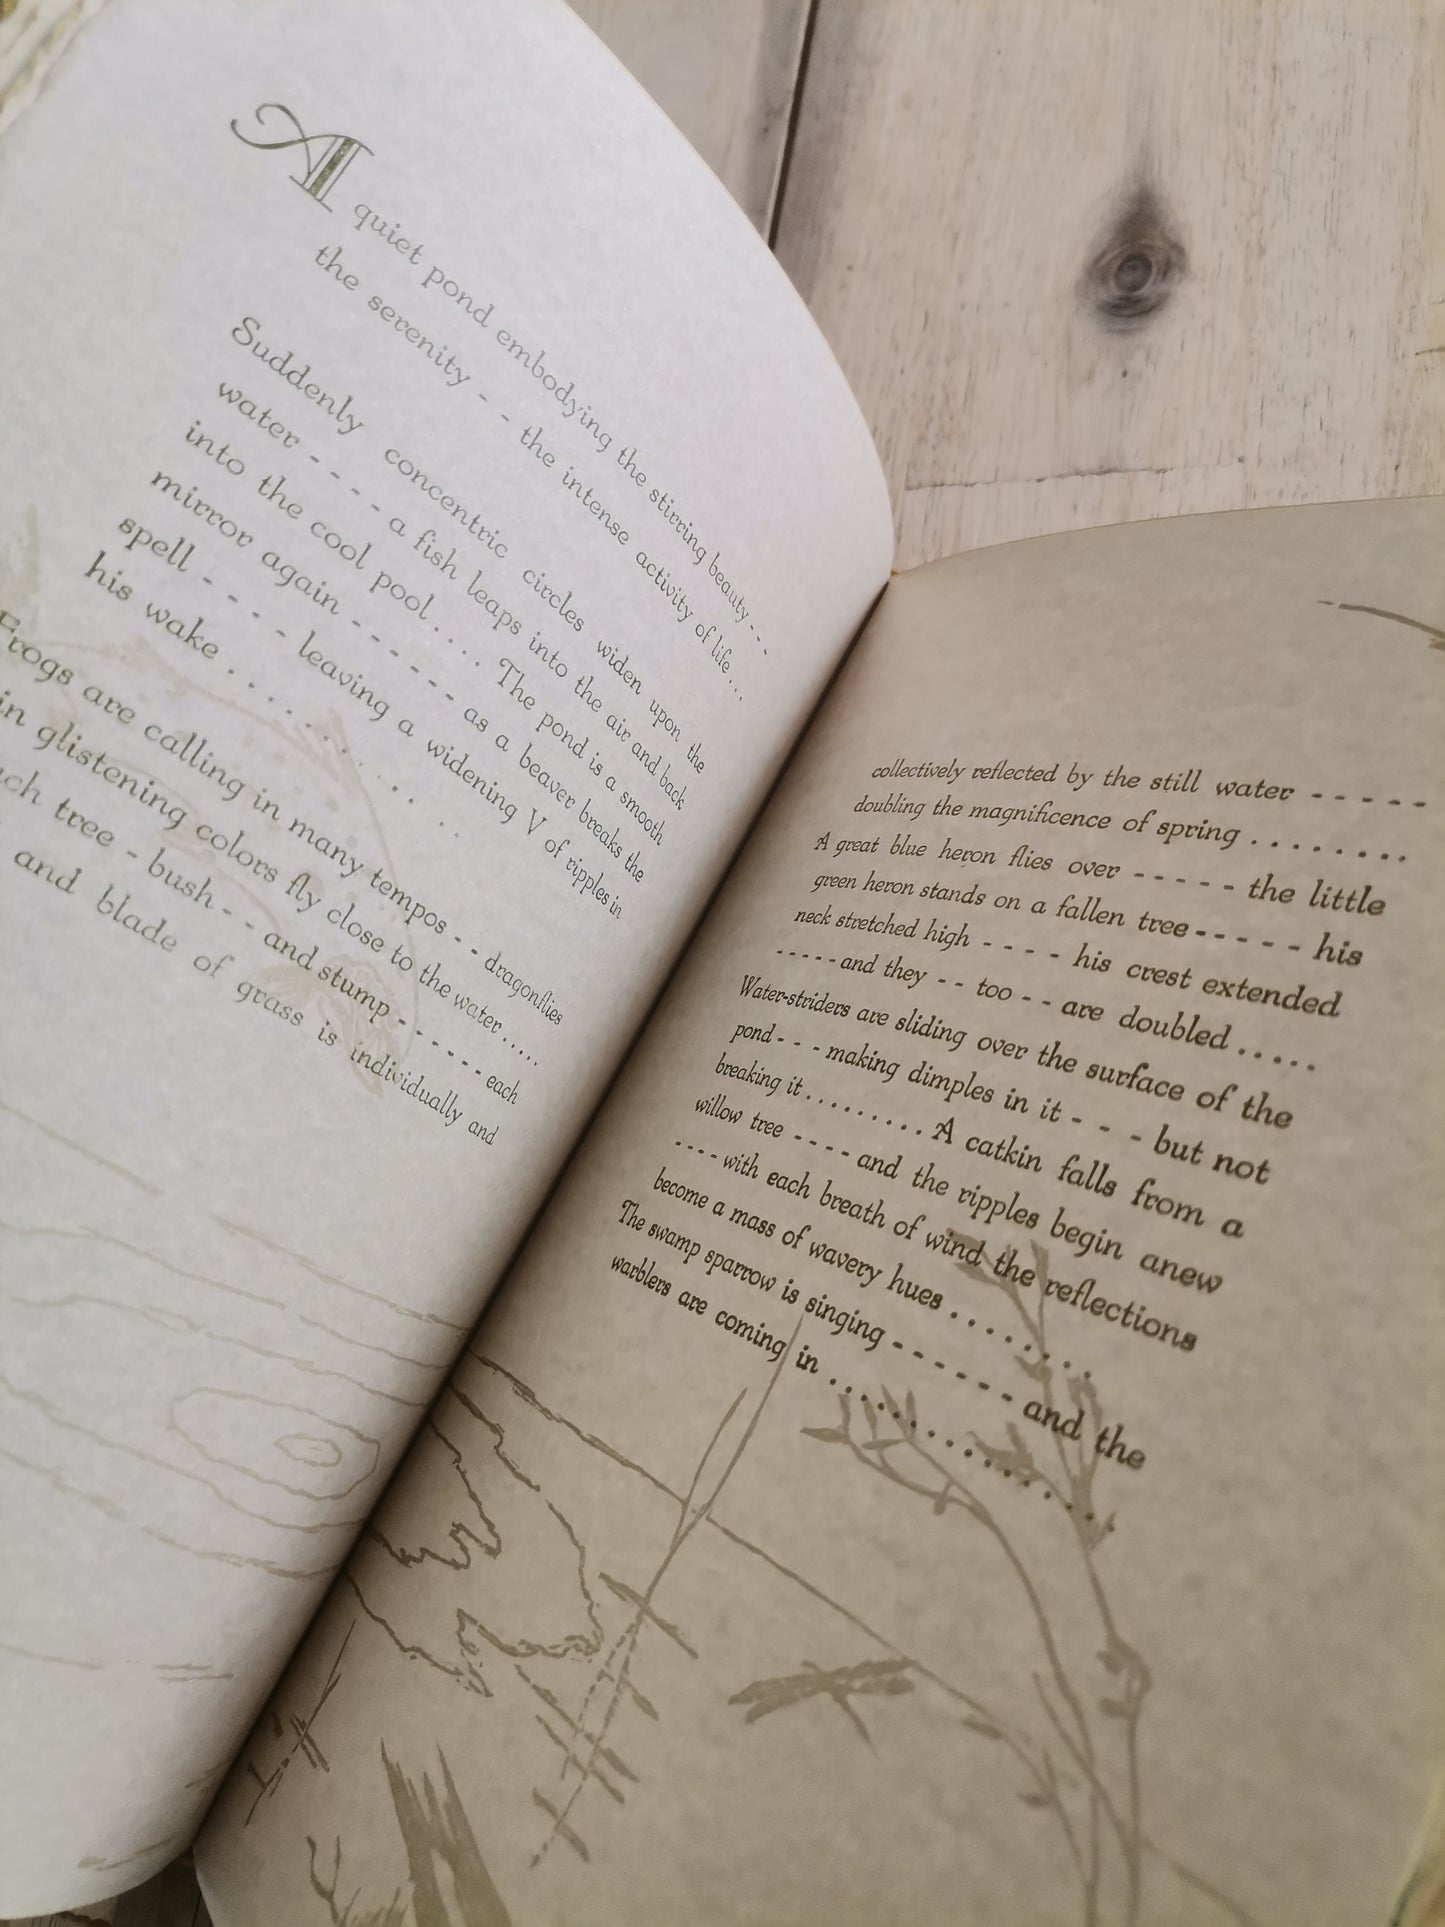 A quiet pond embodying the stirring beauty - - -
the serenity - - the intense activity of life...
Suddenly concentric circles widen upon the
water - - - - a fish leaps into the air and back
into the cool pool . . . . The pond is a smooth
mirror again - - - - - - as a beaver breaks the
spell - - - - leaving a widening V of ripples in
his wake . . . . . . . . . .
Frogs are calling in many tempos - - dragonflies
in glistening colors fly close to the water.....
tree - bush - - and stump - - - - - - each
and blade of grass is individually and
collectively reflected by the still water - - - - -
doubling the magnificence of spring . . . . . . . .
A great blue heron flies over - - - - - the little
green heron stands on a fallen tree - - - - - his
neck stretched high - - - - his crest extended
- - - - - and they - - too - - are doubled . . . . .
Water-striders are sliding over the surface of the
pond - - - making dimples in it - - - but not
breaking it . . . . . . . . . A catkin falls from a
willow tree - - - - and the ripples begin anew
- - - - with each breath of wind the reflections
become a mass of wavery hues . . . . . . . . .
The swamp sparrow is singing - - - - - - and the
warblers are coming in . . . . . . . . . . . . . . . .